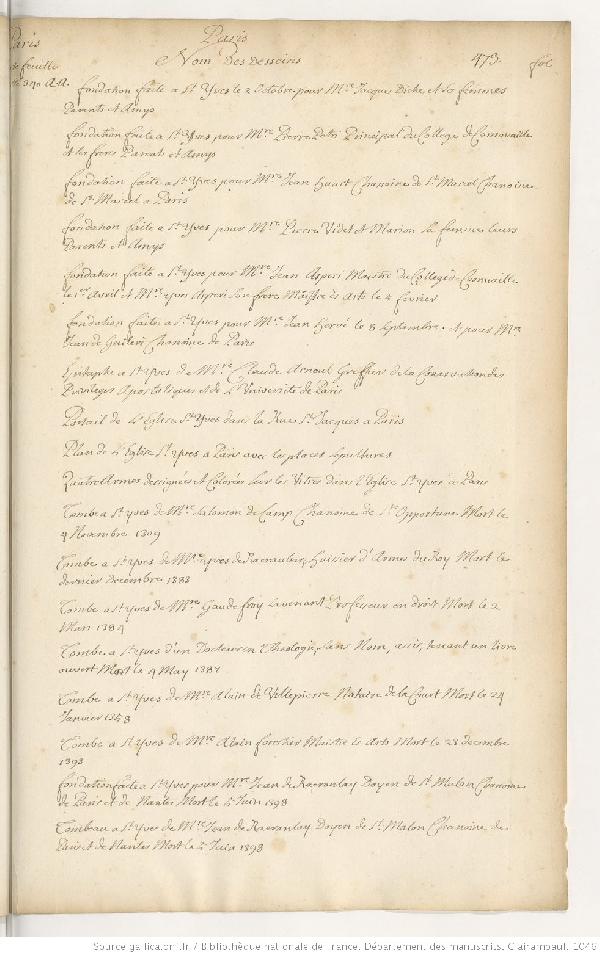 Paris
Paris
Nom Des Desseins
473.
fol
de feuille
fondation faite a St Yves le 2 Octobre pour Mre Jacques Diche et sa femmes
Parents et Amys
fondation faite a St Yves pour Mre Pierre Principal du College de Cornouaille
et les freres Parents et Amys
fondation faite a St Yves pour Mre Jean huart Chanoine de St Marcel Chanoine
de St Marcel a Paris
fondation faite a St Yves pour Mre Pierre Videt et Marion sa femme leurs
Parents et Amys
fondation faite a St Yves pour Mre Jean Asperi Maistre du College de Cornuaille
le 1er Avril et Mre yvon Asperi son frere Maistre es Arts le 4 fevrier
fondation faite a St Yves pour Mre Jean hervé le 8 septembre. et pour Mre
Jean de Chanoine de Paris
Epitaphe a St Yves de Mre Claude Arnoul Greffier de la Conservation des
Privileges Apostoliques et de L'Université de Paris
Portail de L'Eglise St Yves dans la Rue St Jacques a Paris
Plan de L'Eglise St Yves a Paris avec les places sepultures
Quatre Armes dessignées et Colorées sur les Vitres dans l'Eglise St Yves a Paris
Tombe a St Yves de Mre Salomon de Camp Chanoine de Ste Opportune Mort le
9 Novembre 1309
Tombe a St Yves de Mre yves de huissier d'Armes du Roy Mort le
dernier decembre 1388
Tombe a St Yves de Mre Gaudefroy Lavenant Professeur en droit Mort le 2
Mars 1384
Tombe a St Yves d'un Docteur en Theologie, sans Nom, assis, tenant un livre
ouvert Mort le 9 May 1387
Tombe a St Yves de Mre Alain de Villepierre Notaire de la Court Mort le 24
Janvier 1358
Tombe a St Yves de Mre Alain Maistre es Arts Mort le 28 decembre
1393
fondation faite a St Yves pour Mre Jean de Doyen de St Malon Chanoine
de Paris et de Nantes Mort le Juin 1393
Tombeau a St Yves de Mre Jean de Doyen de St Malon Chanoine de
Paris et de Nantes Mort le Juin 1393
Source gallica.bnf.fr / Bibliothèque nationale de France. Département des manuscrits. Clairambault 1046